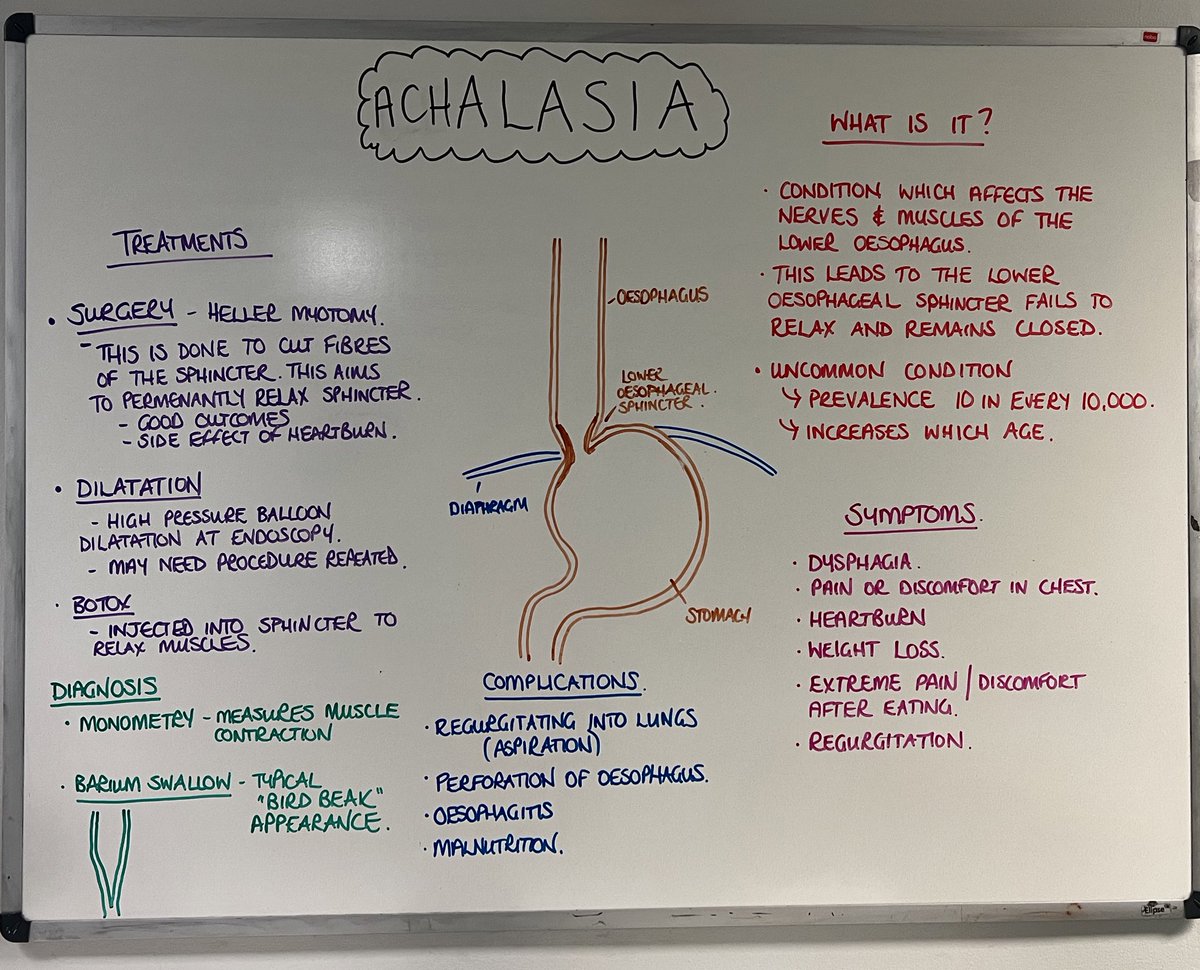 ACHALASIA
WHAT IS IT?
· CONDITION WHICH AFFECTS THE
NERVES & MUSCLES OF THE
LOWER OESOPHAGUS.
· THIS LEADS TO THE LOWER
OESOPHAGEAL SPHINCTER FAILS TO
RELAX AND REMAINS CLOSED.
· UNCOMMON CONDITION
↳ PREVALENCE 10 IN EVERY 10,000.
↳ INCREASES WHICH AGE.
SYMPTOMS.
· DYSPHAGIA.
· PAIN OR DISCOMFORT IN CHEST.
· HEARTBURN
· WEIGHT LOSS.
· EXTREME PAIN / DISCOMFORT
AFTER EATING.
· REGURGITATION.
OESOPHAGUS
LOWER
OESOPHAGEAL
SPHINCTER.
DIAPHRAGM
STOMACH
TREATMENTS
· SURGERY - HELLER MYOTOMY.
- THIS IS DONE TO CUT FIBRES
OF THE SPHINCTER. THIS AIMS
TO PERMENANTLY RELAX SPHINCTER.
- GOOD OUTCOMES
- SIDE EFFECT OF HEARTBURN.
· DILATATION
- HIGH PRESSURE BALLOON
DILATATION AT ENDOSCOPY.
- MAY NEED PROCEDURE REPEATED.
· BOTOX
- INJECTED INTO SPHINCTER TO
RELAX MUSCLES.
DIAGNOSIS
· MONOMETRY - MEASURES MUSCLE
CONTRACTION
· BARIUM SWALLOW - TYPICAL
"BIRD BEAK"
APPEARANCE.
COMPLICATIONS.
· REGURGITATING INTO LUNGS
(ASPIRATION)
· PERFORATION OF OESOPHAGUS.
· OESOPHAGITIS
· MALNUTRITION.
nobo
Elipse